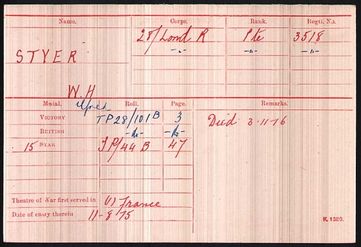 Name. Corps. Rank. Regtl. No.
STYER 28/Lond R Pte 3518
-"- -"- -"-
W.H
Medal. Roll. Page. Remarks.
VICTORY TP28/101B 3 Died 3-11-16
BRITISH -"- -"-
15 STAR 47
Theatre of War first served in France
Date of entry therein
K. 1380.